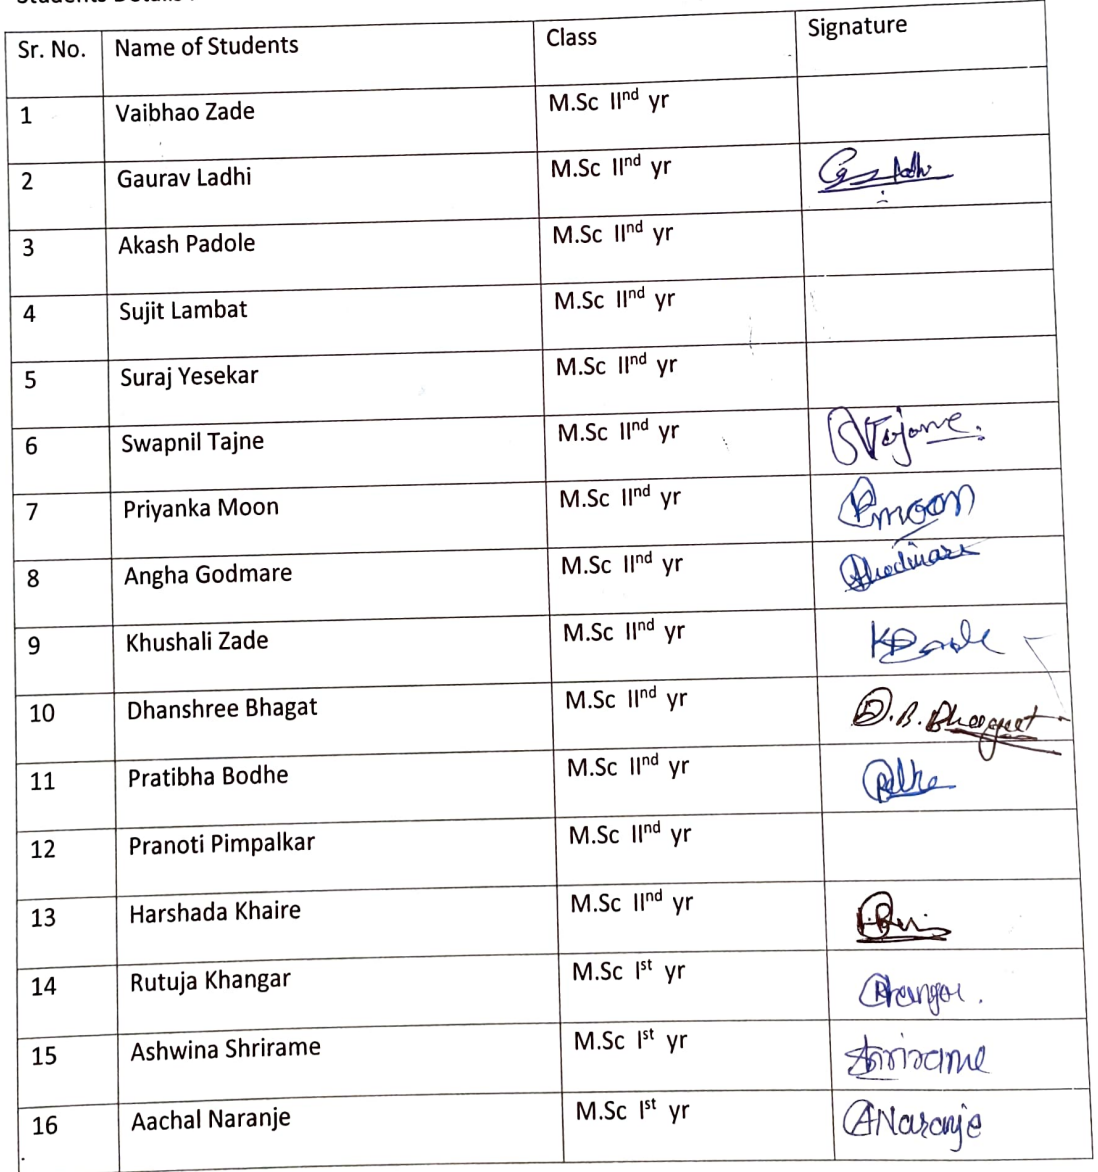 Sr. No. Name of Students Class Signature
1 Vaibhao Zade M.Sc IInd yr
2 Gaurav Ladhi M.Sc IInd yr
3 Akash Padole M.Sc IInd yr
4 Sujit Lambat M.Sc IInd yr
5 Suraj Yesekar M.Sc IInd yr
6 Swapnil Tajne M.Sc IInd yr
7 Priyanka Moon M.Sc IInd yr Pmoon
8 Angha Godmare M.Sc IInd yr
9 Khushali Zade M.Sc IInd yr
10 Dhanshree Bhagat M.Sc IInd yr D.B. Bhagat
11 Pratibha Bodhe M.Sc IInd yr
12 Pranoti Pimpalkar M.Sc IInd yr
13 Harshada Khaire M.Sc IInd yr
14 Rutuja Khangar M.Sc Ist yr
15 Ashwina Shrirame M.Sc Ist yr
16 Aachal Naranje M.Sc Ist yr ANaranje